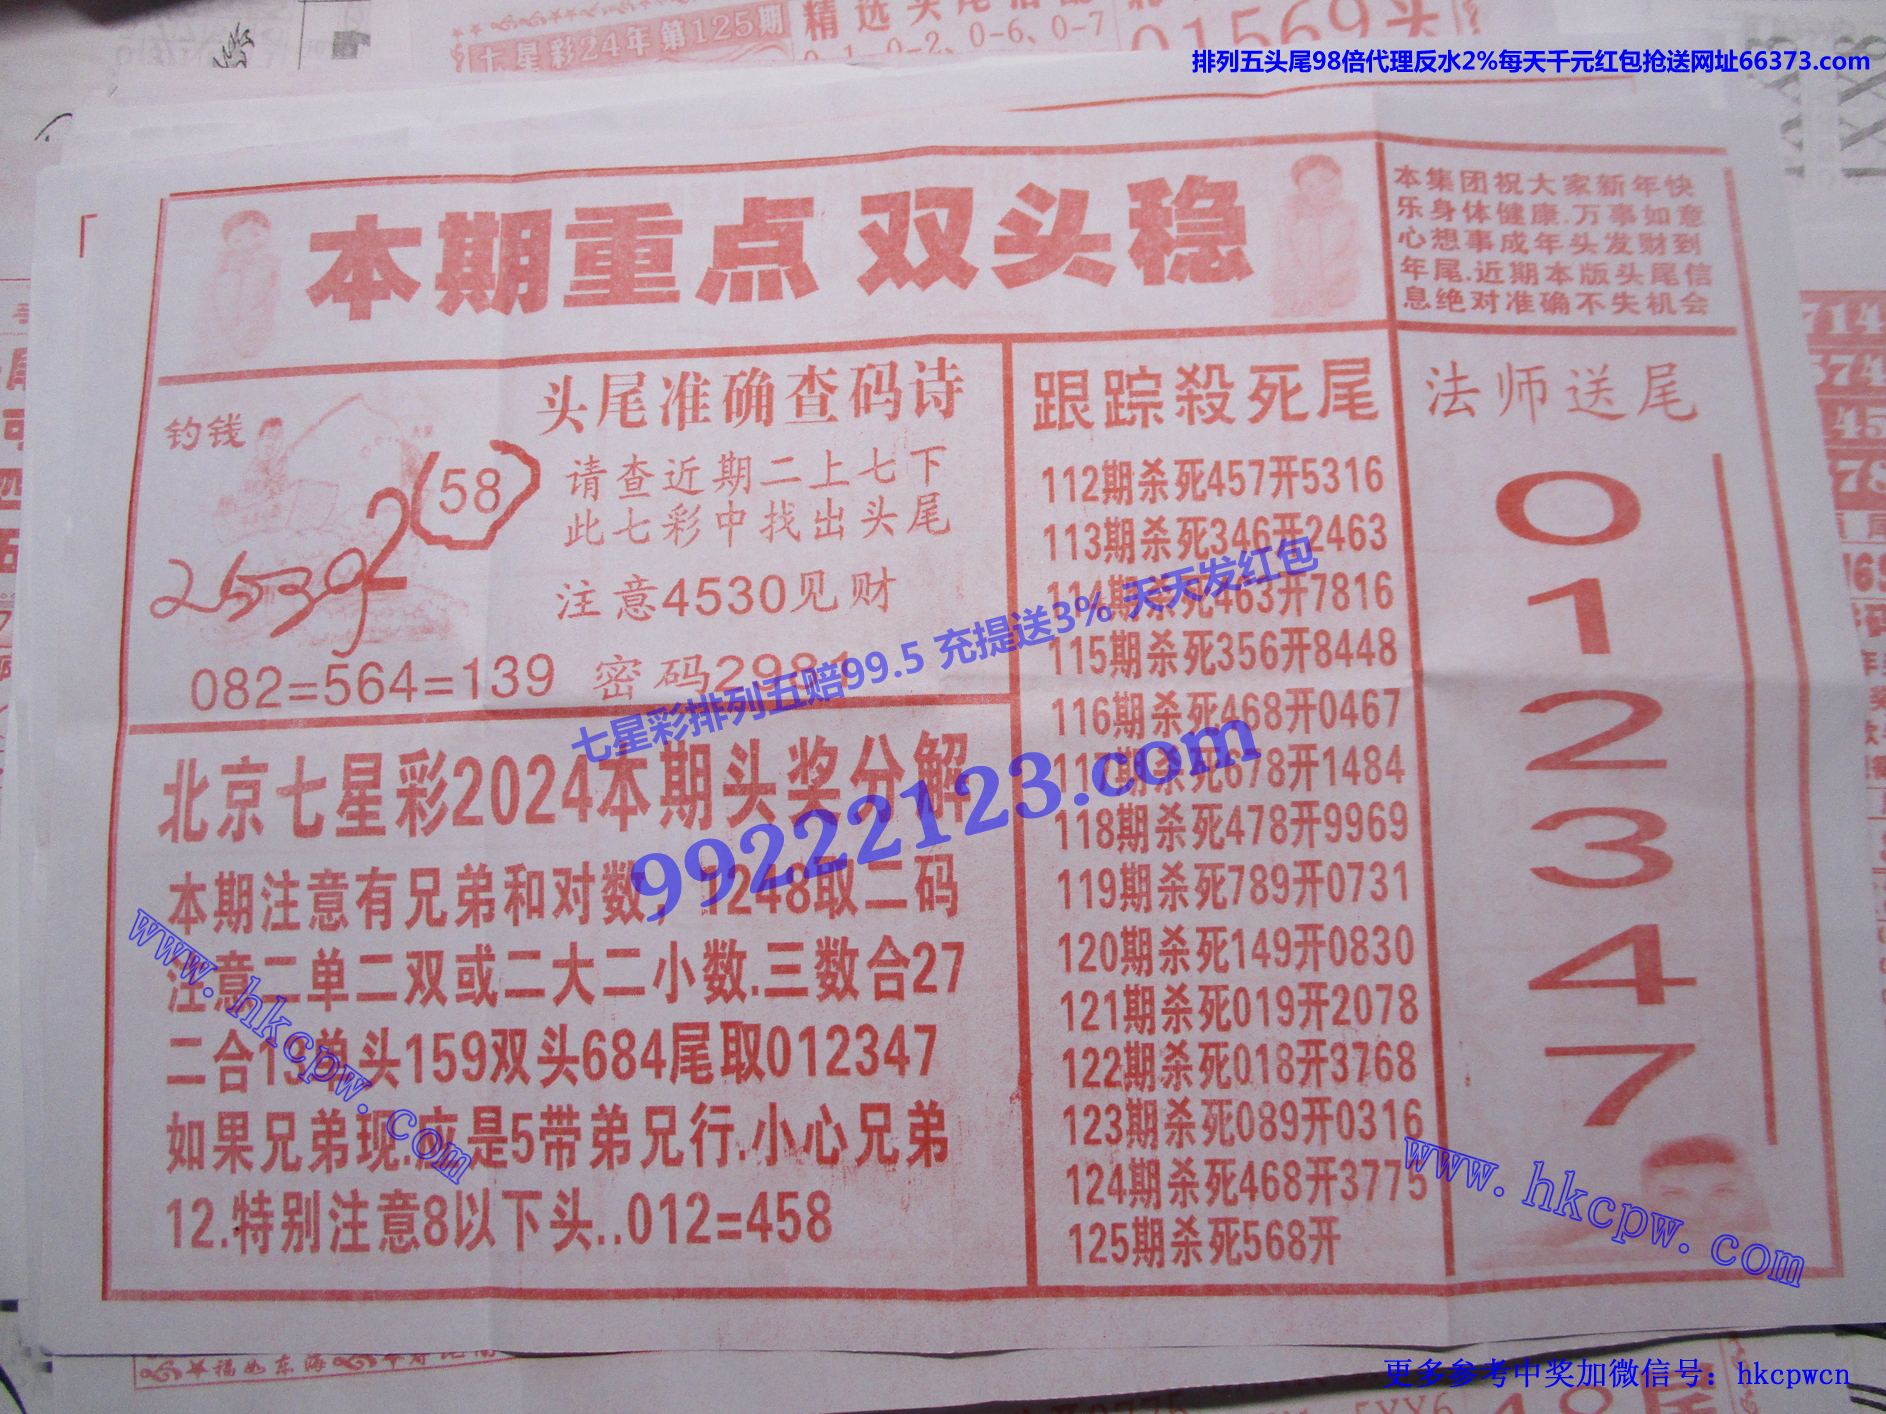 七星彩24年第125期
0-6、0-7
01569头
排列五头尾98倍代理反水2%每天千元红包抢送网址66373.com
本期重点 双头稳
本集团祝大家新年快
乐身体健康.万事如意
心想事成年头发财到
年尾.近期本版头尾信
息绝对准确不失机会
钓钱
(58)
头尾准确查码诗
请查近期二上七下
此七彩中找出头尾
注意4530见财
082=564=139 密码2981
跟踪殺死尾
112期杀死457开5316
113期杀死346开2463
114期杀死463开7816
115期杀死356开8448
116期杀死468开0467
117期杀死678开1484
118期杀死478开9969
119期杀死789开0731
120期杀死149开0830
121期杀死019开2078
122期杀死018开3768
123期杀死089开0316
124期杀死468开3775
125期杀死568开
法师送尾
0
1
2
3
4
7
北京七星彩2024本期头奖分解
本期注意有兄弟和对数，1248取二码
注意二单二双或二大二小数.三数合27
二合13单头159双头684尾取012347
如果兄弟现.应是5带弟兄行.小心兄弟
12.特别注意8以下头..012=458
七星彩排列五赔99.5 充提送3% 天天发红包
99222123.com
www.hkcpw.com
www.hkcpw.com
福如东海
更多参考中奖加微信号：hkcpwcn